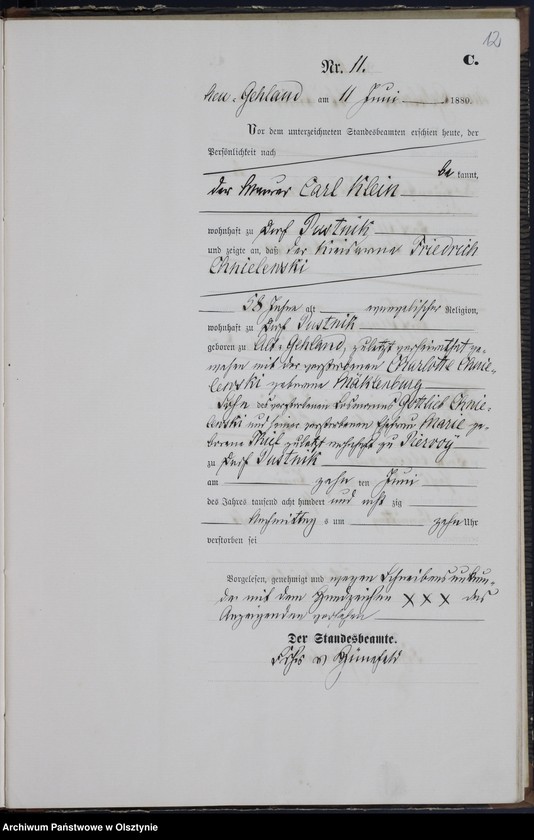 12
C.
Nr. 11.
Neu-Gehland am 11 Juni 1880.
Vor dem unterzeichneten Standesbeamten erschien heute, der
Persönlichkeit nach
be kannt,
der Maurer Carl Klein
wohnhaft zu Dorf Pustnik
und zeigte an, daß der Friedrich
Chmielewski
58 Jahre alt evangelischer Religion,
wohnhaft zu Dorf Pustnik
geboren zu Alt-Gehland, zuletzt verheirathet ge-
wesen mit der verstorbenen Charlotte Chmie-
lewski geborene Mählenburg
Sohn des verstorbenen Gottlieb Chmie-
lewski und seiner verstorbenen Ehefrau Marie ge-
borene zuletzt wohnhaft zu
zu Dorf Pustnik
am zehn ten Juni
des Jahres tausend acht hundert und acht zig
Nachmittag s um zehn Uhr
verstorben sei
Vorgelesen, genehmigt und wegen Schreibensunkun-
de mit dem Handzeichen XXX des
Anzeigenden versehen
Der Standesbeamte.
Archiwum Państwowe w Olsztynie